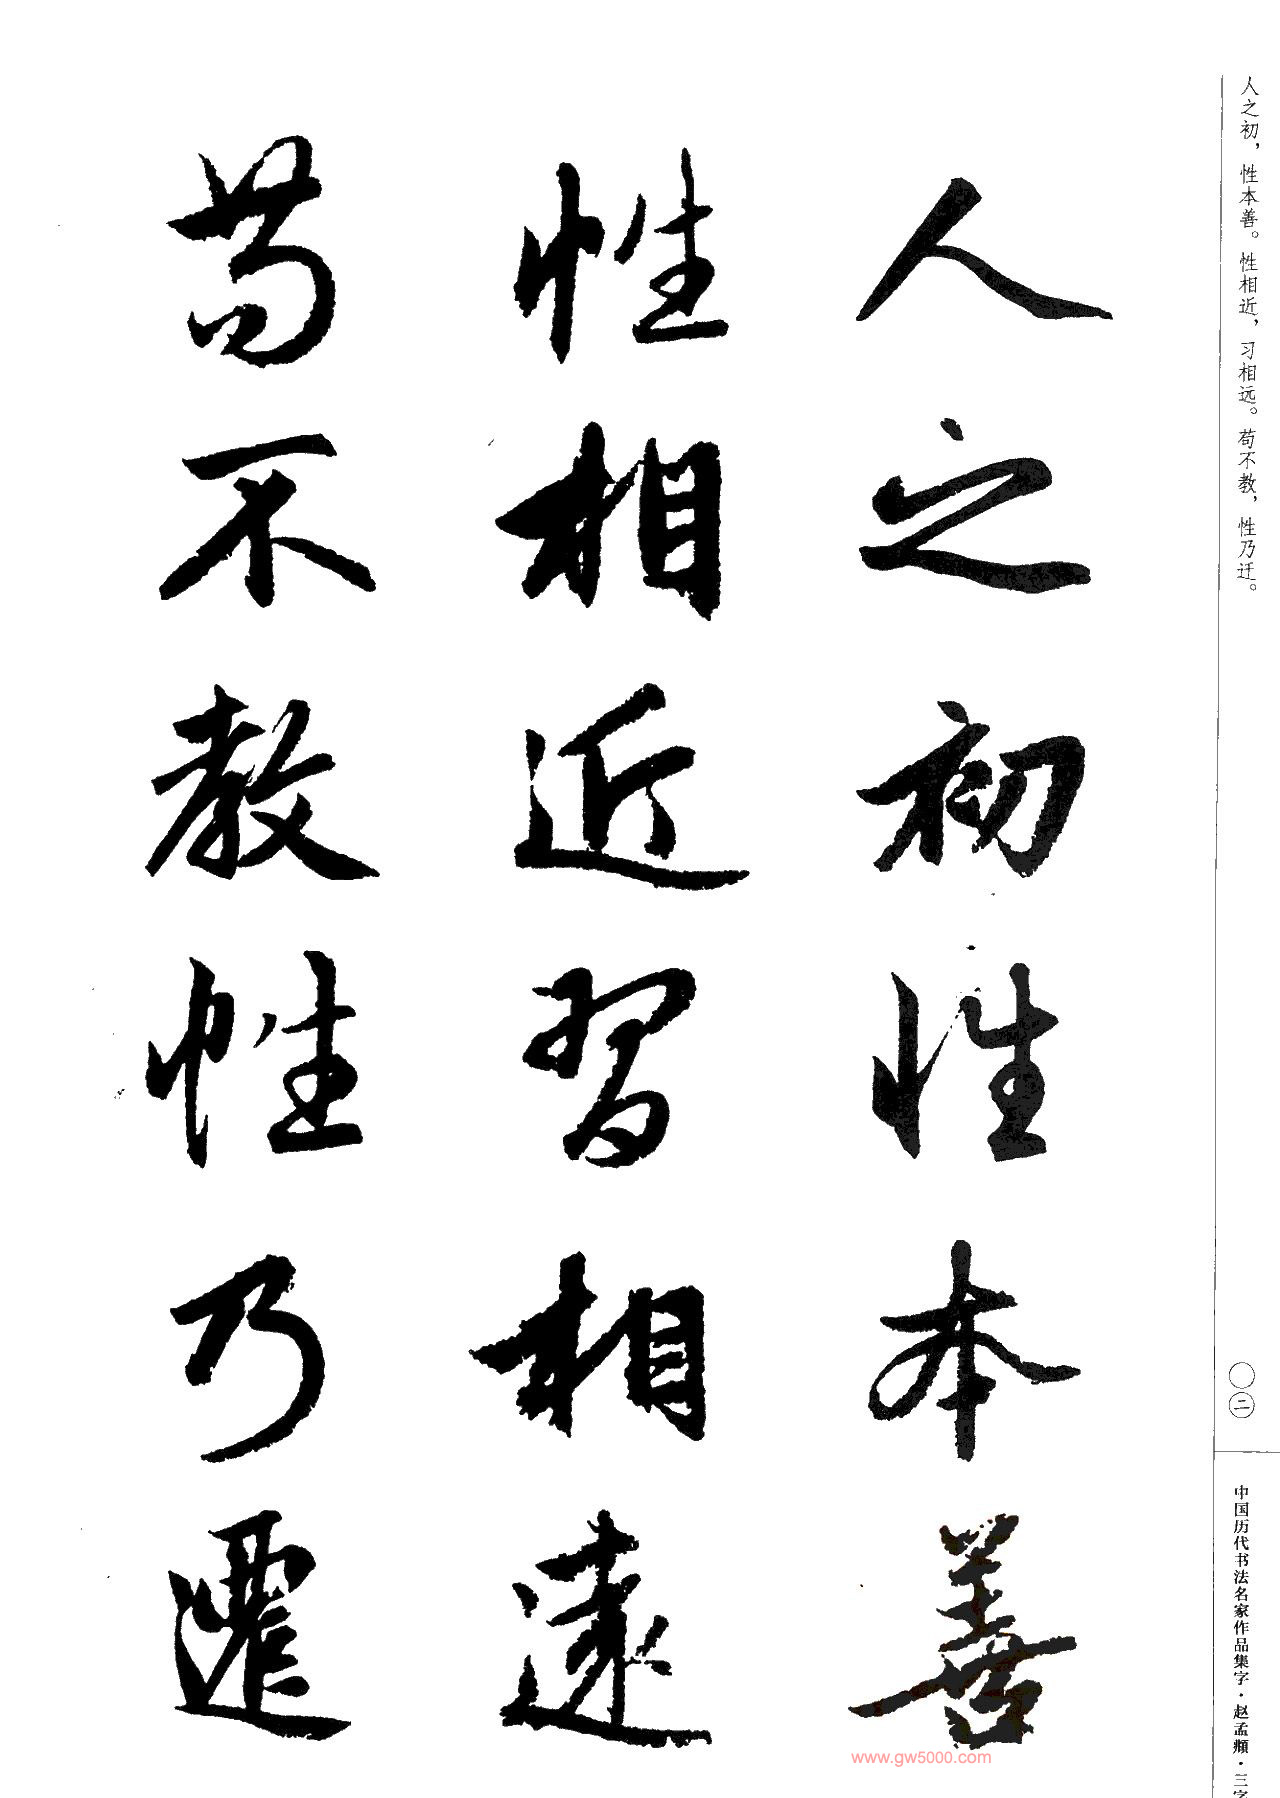 人之初，性本善。性相近，习相远。苟不教，性乃迁。
人之初性本善
性相近習相遠
苟不教性乃遷
〇二
中国历代书法名家作品集字·赵孟頫·三字
www.gw5000.com